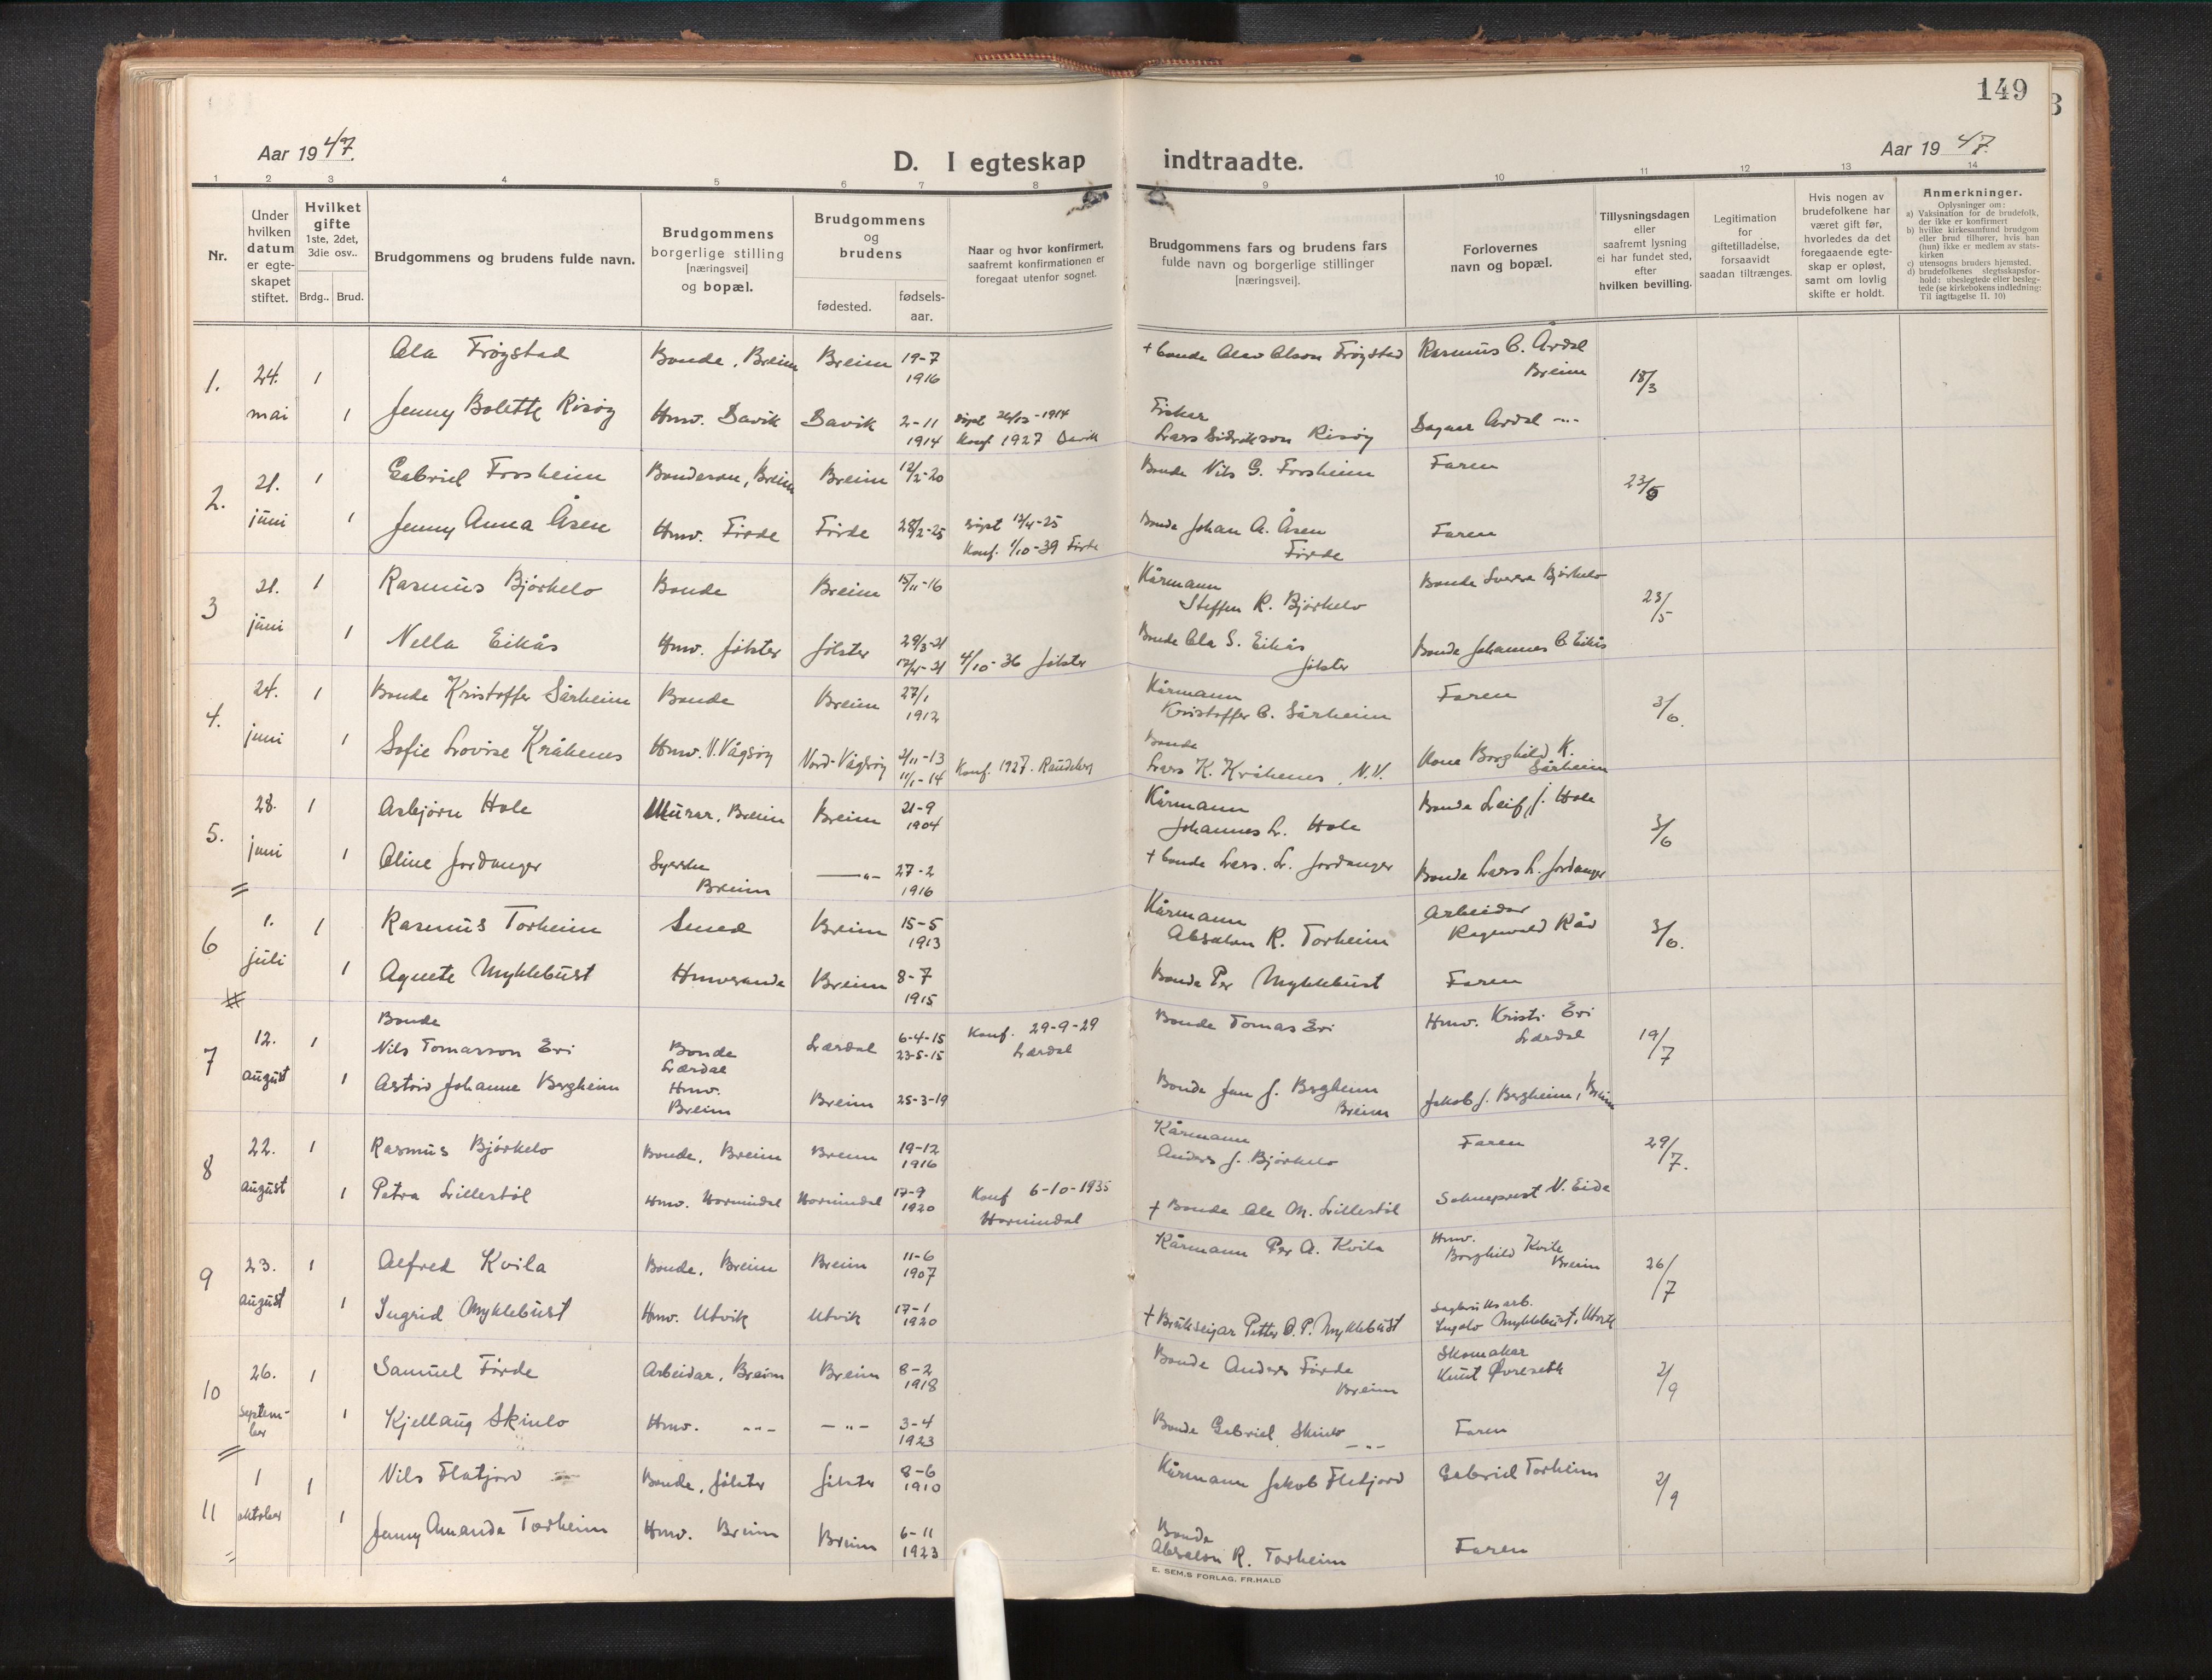 149
Aar 1947.
D. I egteskap indtraadte.
Aar 1947
1 2 3 4 5 6 7 8 9 10 11 12 13 14
Nr.
Under hvilken datum er egteskapet stiftet.
Hvilket gifte
1ste, 2det, 3die osv..
Brdg.. Brud.
Brudgommens og brudens fulde navn.
Brudgommens borgerlige stilling [næringsvei] og bopæl.
Brudgommens og brudens
fødested. fødsels-aar.
Naar og hvor konfirmert, saafremt konfirmationen er foregaat utenfor sognet.
Brudgommens fars og brudens fars fulde navn og borgerlige stillinger [næringsvei].
Forlovernes navn og bopæl.
Tillysningsdagen eller saafremt lysning ei har fundet sted, efter hvilken bevilling.
Legitimation for giftetilladelse, forsaavidt saadan tiltrænges.
Hvis nogen av brudefolkene har været gift før, hvorledes da det foregaaende egteskap er opløst, samt om lovlig skifte er holdt.
Anmerkninger.
Oplysninger om:
a) Vaksination for de brudefolk, der ikke er konfirmert
b) hvilke kirkesamfund brudgom eller brud tilhører, hvis han (hun) ikke er medlem av statskirken
c) utensogns bruders hjemsted.
d) brudefolkenes slegtsskapsforhold: ubeslegtede eller beslegtede (se kirkebokens indledning: Til iagttagelse II. 10)
1. 24. mai 1 Ola Frøystad Bonde, Breim Breim 19-7 1916 + bonde Olav Olson Frøystad Rasmus O. Årdal Breim 18/3
1 Jenny Bolette Risøy Hmv. Davik Davik 2-11 1914 døpt 26/12-1914 Konf 1927 Davik Fisker Lars Didrikson Risøy Dagny Årdal -"-
2. 21. juni 1 Gabriel Fossheim Bondeson, Breim Breim 12/2-20 Bonde Nils G. Fossheim Faren 23/5
1 Jenny Anna Åsen Hmv. Førde Førde 28/2-25 døpt 13/4-25 Konf. 1/10-39 Førde Bonde Johan A. Åsen Førde Faren
3 21. juni 1 Rasmus Bjørkelo Bonde Breim 15/11-16 Kårmann Steffen R. Bjørkelo Bonde Sverre Bjørkelo 23/5
1 Nella Eikås Hmv. Jølster Jølster 29/3-21 17/4-21 4/10-36 Jølster Bonde Ola S. Eikås Jølster Bonde Johannes O. Eikås
4. 24. juni 1 Bonde Kristoffer Sårheim Bonde Breim 27/1 1912 Kårmann Kristoffer O. Sårheim Faren 3/6.
1 Sofie Lovise Kråkenes Hmv. N. Vågsøy Nord-Vågsøy 2/11-13 11/1-14 Konf. 1927. Raudeberg Bonde Lars K. Kråkenes, N.V. Kona Borghild K. Sårheim
5. 28. juni 1 Asbjørn Hole Murar, Breim Breim 21-9 1904 Kårmann Johannes L. Hole Bonde Leif J. Hole 3/6
1 Oline Jordanger Syerske Breim -"- 27-2 1916 + bonde Lars. L. Jordanger Bonde Lars L. Jordanger
6 1. juli 1 Rasmus Torheim Smed Breim 15-5 1913 Kårmann Absalon R. Torheim Arbeidar Ragnvald Råd 3/6.
1 Agnete Myklebust Hmvrande Breim 8-7 1915 Bonde Per Myklebust Faren
7 12. august 1 Bonde Nils Tomasson Eri Bonde Lærdal Lærdal 6-4-15 23-5-15 Konf. 29-9-29 Lærdal Bonde Tomas Eri Hmv. Kristi Eri Lærdal 19/7
1 Astrid Johanne Bergheim Hmv. Breim Breim 25-3-19 Bonde Jon J. Bergheim Breim Jakob J. Bergheim, Breim
8 22. august 1 Rasmus Bjørkelo Bonde, Breim Breim 19-12 1916 Kårmann Anders J. Bjørkelo Faren 29/7.
1 Petra Lillestøl Hmv. Hornindal Hornindal 17-9 1920 Konf 6-10-1935 Hornindal + Bonde Ole M. Lillestøl Sokneprest N. Eide
9 23. august 1 Alfred Kvila Bonde, Breim Breim 11-6 1907 Kårmann Per A. Kvila Hmv. Borghild Kvile Breim 26/7
1 Ingrid Myklebust Hmv. Utvik Utvik 17-1 1920 + Brukseigar Petter O.P. Myklebust Sagbruksarb. Ingolv Myklebust, Utvik
10 26. september 1 Samuel Førde Arbeidar, Breim Breim 8-2 1918 Bonde Anders Førde Breim Skomaker Knut Øvreseth 2/9
1 Kjellaug Skinlo Hmv. -"- -"- 3-4 1923 Bonde Gabriel Skinlo -"- Faren
11 1 oktober 1 Nils Flatjord Bonde, Jølster Jølster 8-6 1910 Kårmann Jakob Flatjord Gabriel Torheim 2/9
1 Jenny Amanda Torheim Hmv. Breim Breim 6-11 1923 Bonde Absalon R. Torheim Faren
E. SEM.S FORLAG, FR.HALD